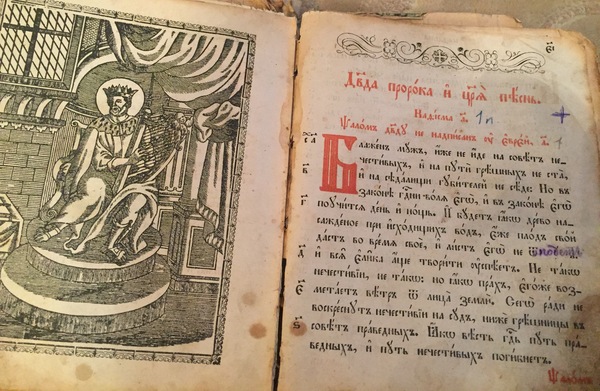 Дв҃да прⷪ҇ро́ка и҆ цр҃ѧ̀ пѣ́снь.
Каѳі́сма а҃. 1 п +
Ѱало́мъ дв҃дꙋ не надпи́санъ ᲂу҆ є҆врє́й, а҃. 1
Бл҃же́нъ мꙋ́жъ, и҆́же не и҆́де на совѣ́тъ не-
чести́выхъ, и҆ на пꙋтѝ грѣ́шныхъ не ста̀,
и҆ на сѣда́лищи гꙋби́телей не сѣ́де: Но въ
зако́нѣ гдⷭ҇ни во́лѧ є҆гѡ̀, и҆ въ зако́нѣ є҆гѡ̀
поꙋчи́тсѧ де́нь и҆ но́щь. И҆ бꙋ́детъ ꙗ҆́кѡ дре́во на-
сажде́ное при и҆схо́дищихъ во́дъ, є҆́же пло́дъ сво́й
да́стъ во вре́мѧ своѐ, и҆ ли́стъ є҆гѡ̀ не ѿ
и҆ всѧ̑ є҆ли̑ка а҆́ще твори́тъ ᲂу҆спѣ́етъ. Не та́кѡ
нечести́вїи, не та́кѡ: но ꙗ҆́кѡ пра́хъ, є҆го́же воз-
мета́етъ вѣ́тръ ѿ лица̀ землѝ. Сегѡ̀ ра́ди не
воскре́снꙋтъ нечести́вїи на сꙋ́дъ, нижѐ грѣ́шницы въ
совѣ́тъ пра́ведныхъ. Ꙗ҆́кѡ вѣ́сть гдⷭ҇ь пꙋ́ть пра́-
ведныхъ, и҆ пꙋ́ть нечести́выхъ поги́бнетъ.
Ѱало́мъ